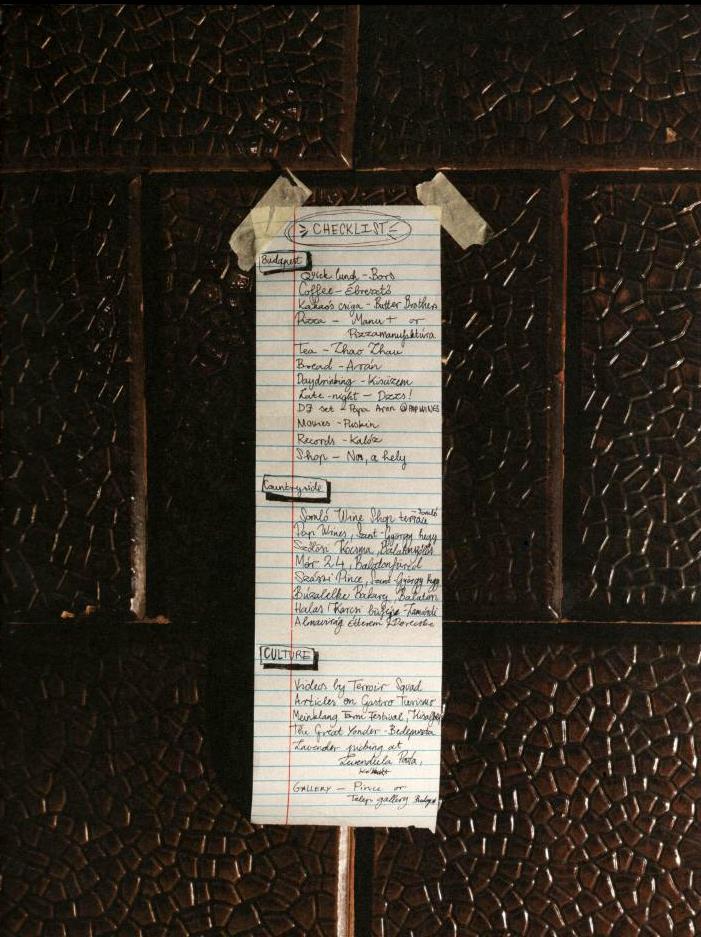 CHECKLIST
Budapest
Quick lunch - Bors
Coffee - Ébresztő
Kakaós csiga - Butter Brothers
Pizza - Manu + or
Pizzamanufaktúra
Tea - Zhao Zhou
Bread - Arán
Daydrinking - Kisüzem
Late-night - Dzzs!
DJ set - Papa Aron @ PAP WINES
Movies - Puskin
Records - Kalóz
Shop - Na, a hely
Countryside
Somló Wine Shop terrace - Somló
Pap Wines, Szent-György hegy
Szőlősi Kocsma, Balatonszőlős
Mór 24, Balatonfüred
Szászi Pince, Szent-György hegy
Búzalelke Bakery, Balaton
Halas Karcsi büféje - Zamárdi
Almavirág Étterem
CULTURE
Videos by Terroir Squad
Articles on Gastro Turismo
Meinklang Farm Festival,
The Great Yonder - Bedepuszta
Lavender picking at
Levendula
GALLERY - Pince or
Telep gallery